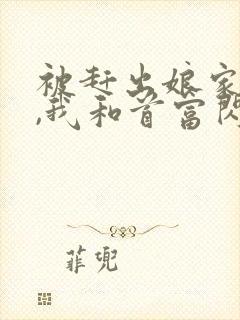 被赶出娘家
,我和首富闪
菲兜